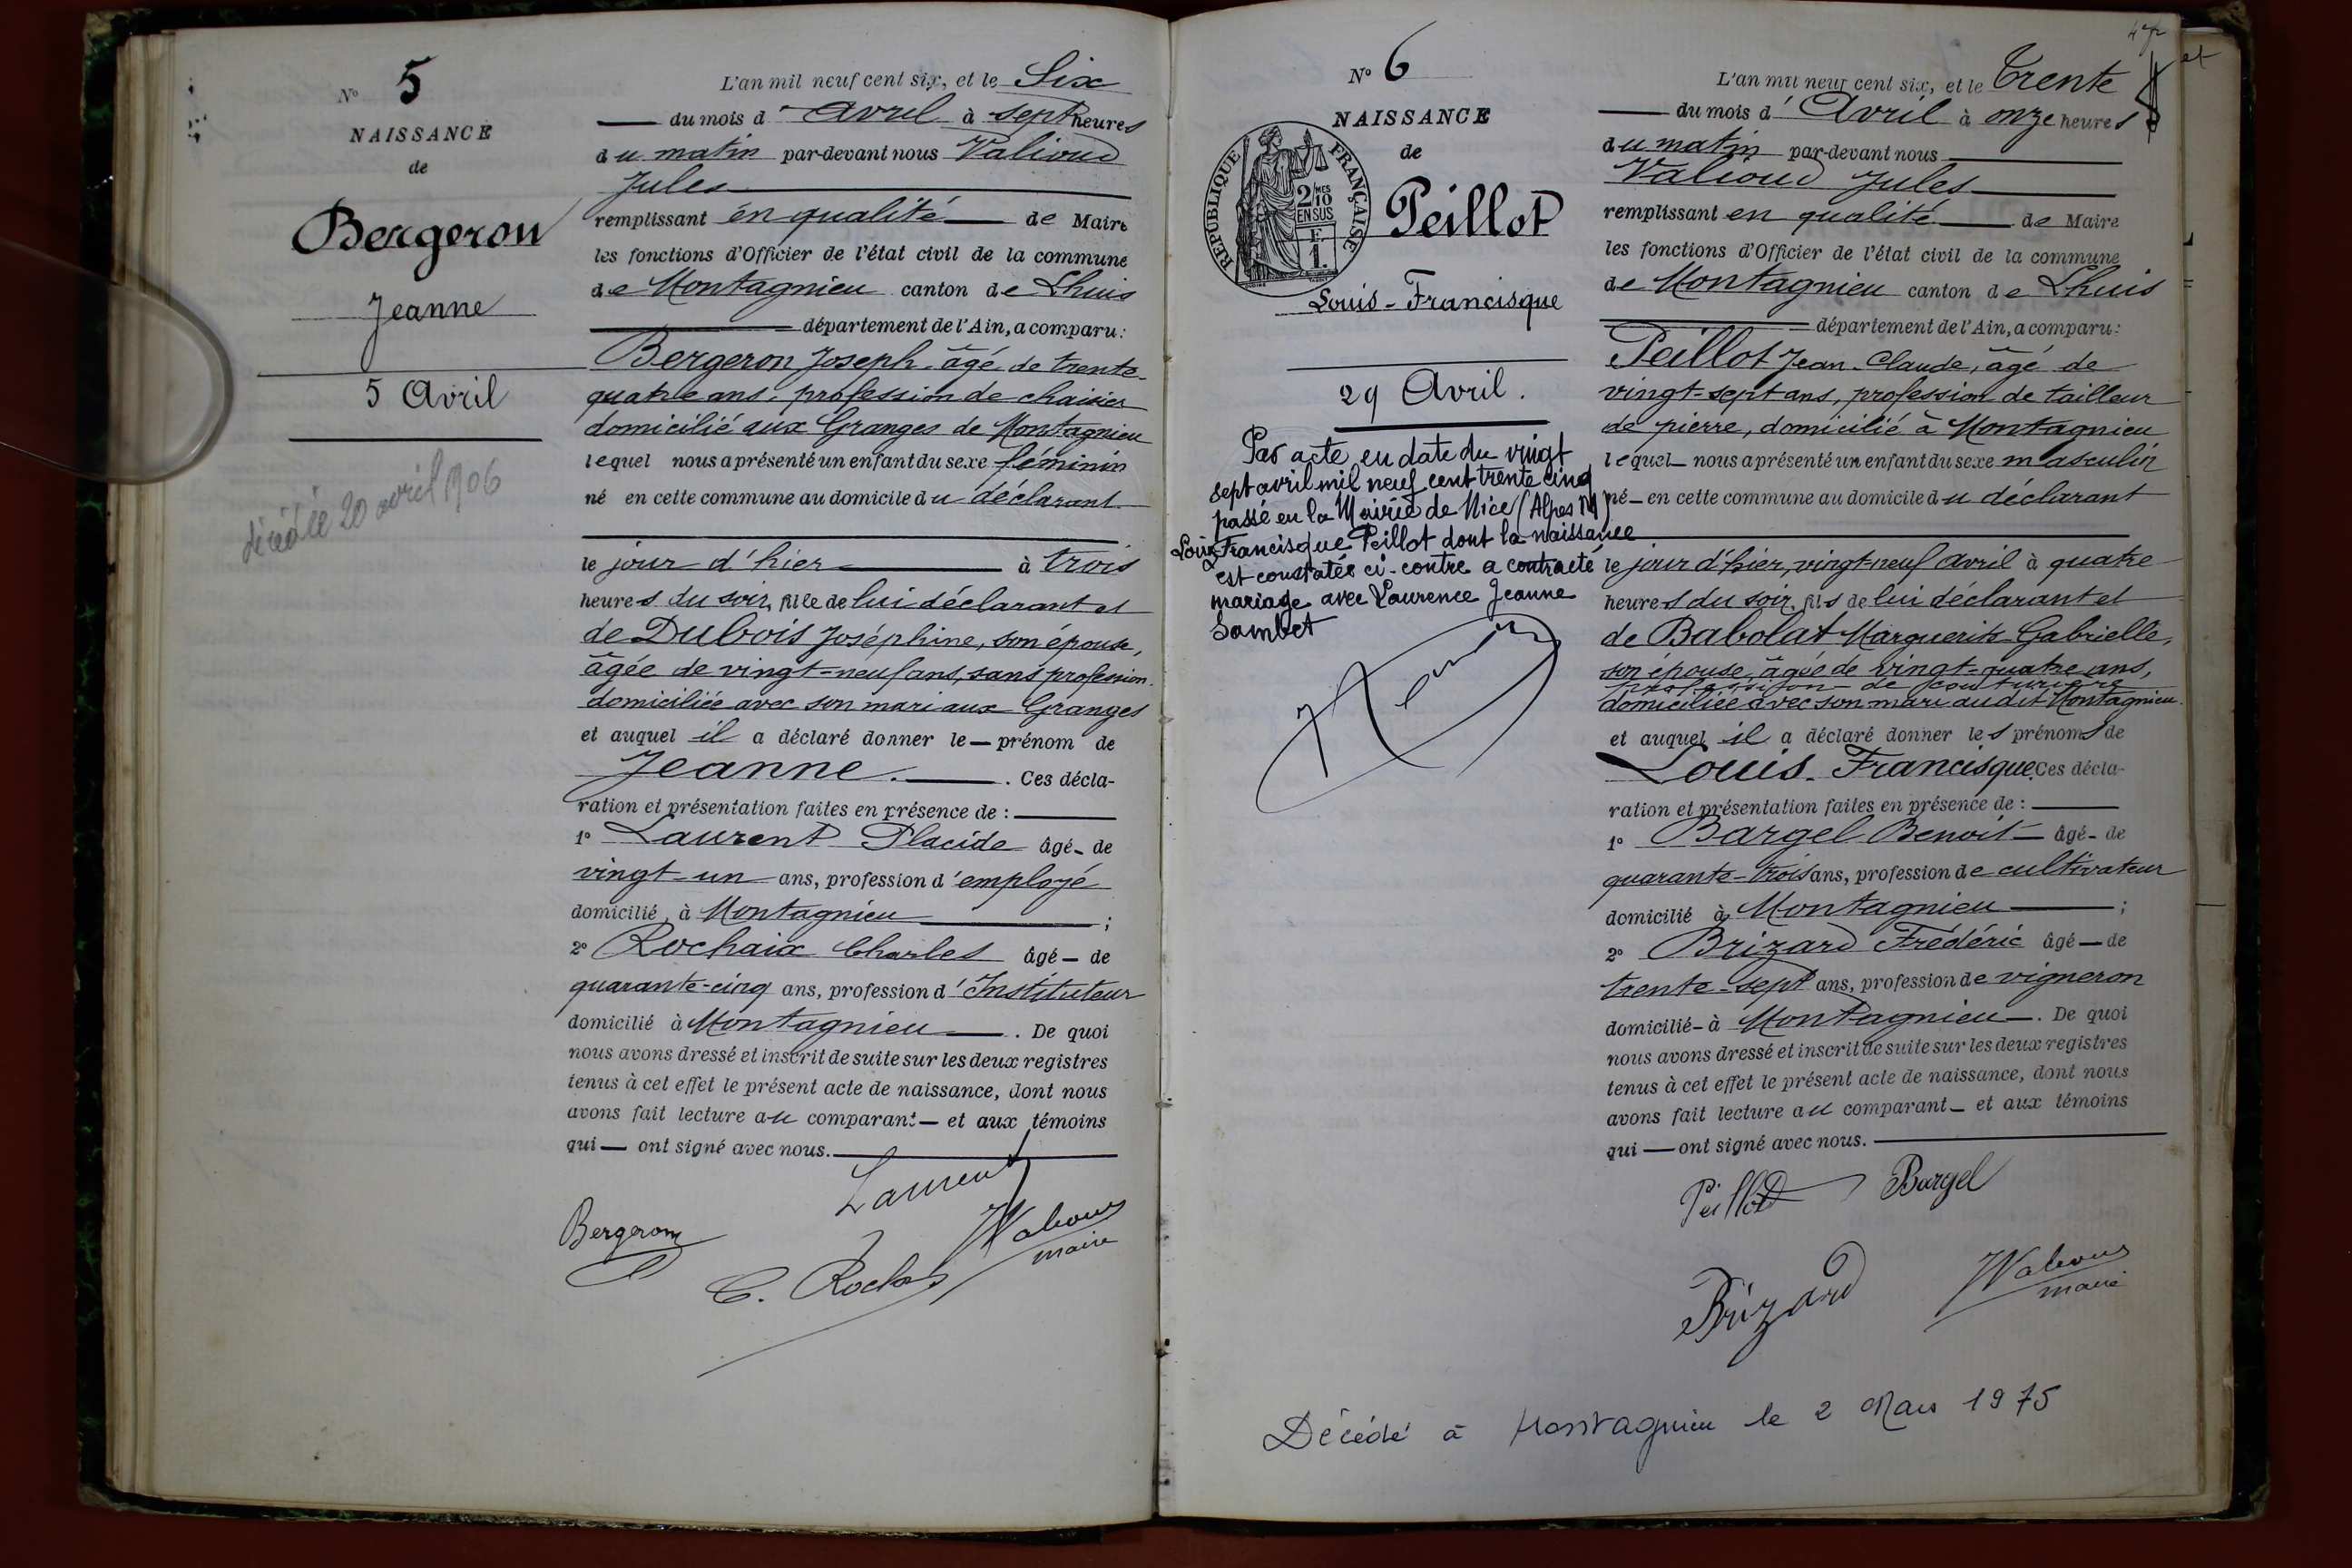 N° 5
NAISSANCE
de
Bergeron
Jeanne
5 Avril
décédée 20 avril 1906
L'an mil neuf cent six, et le Six
du mois d' Avril à sept heures
du matin par-devant nous Valioud
Jules
remplissant en qualité de Maire
les fonctions d'Officier de l'état civil de la commune
de Montagnieu canton de Lhuis
département de l'Ain, a comparu :
Bergeron Joseph, âgé de trente-
quatre ans, profession de chaisier
domicilié aux Granges de Montagnieu
lequel nous a présenté un enfant du sexe féminin
né en cette commune au domicile du déclarant
le jour d'hier à trois
heures du soir, fille de lui déclarant et
de Dubois Joséphine, son épouse,
âgée de vingt-neuf ans, sans profession
domiciliée avec son mari aux Granges
et auquel il a déclaré donner le prénom de
Jeanne. Ces décla-
ration et présentation faites en présence de :
1° Laurent Placide âgé de
vingt-un ans, profession d'employé
domicilié à Montagnieu ;
2° Rochaix Charles âgé de
quarante-cinq ans, profession d'Instituteur
domicilié à Montagnieu . De quoi
nous avons dressé et inscrit de suite sur les deux registres
tenus à cet effet le présent acte de naissance, dont nous
avons fait lecture au comparant et aux témoins
qui ont signé avec nous.
Laurent
Bergeron
Valioud
maire
C. Rochaix
N° 6
NAISSANCE
de
REPUBLIQUE FRANÇAISE
2 MES
10
EN SUS
F.
1.
Peillot
Louis-Francisque
29 Avril.
Par acte en date du vingt
sept avril mil neuf cent trente cinq
passé en la Mairie de Nice (Alpes M)
Louis Francisque Peillot dont la naissance
est constatée ci-contre a contracté
mariage avec Laurence Jeanne
Sambet
L'an mil neuf cent six, et le Trente
du mois d' Avril à onze heures
du matin par-devant nous
Valioud Jules
remplissant en qualité de Maire
les fonctions d'Officier de l'état civil de la commune
de Montagnieu canton de Lhuis
département de l'Ain, a comparu :
Peillot Jean-Claude, âgé de
vingt-sept ans, profession de tailleur
de pierre, domicilié à Montagnieu
lequel nous a présenté un enfant du sexe masculin
né en cette commune au domicile du déclarant
le jour d'hier, vingt-neuf avril à quatre
heures du soir, fils de lui déclarant et
de Babolat Marguerite Gabrielle,
son épouse, âgée de vingt-quatre ans,
profession de couturière
domiciliée avec son mari audit Montagnieu.
et auquel il a déclaré donner les prénoms de
Louis-Francisque. Ces décla-
ration et présentation faites en présence de :
1° Bargel Benoit âgé de
quarante-trois ans, profession de cultivateur
domicilié à Montagnieu ;
2° Brizard Frédéric âgé de
trente-sept ans, profession de vigneron
domicilié à Montagnieu . De quoi
nous avons dressé et inscrit de suite sur les deux registres
tenus à cet effet le présent acte de naissance, dont nous
avons fait lecture au comparant et aux témoins
qui ont signé avec nous.
Peillot Bargel
Brizard
Valioud
maire
Décédé à Montagnieu le 2 Mars 1975
et